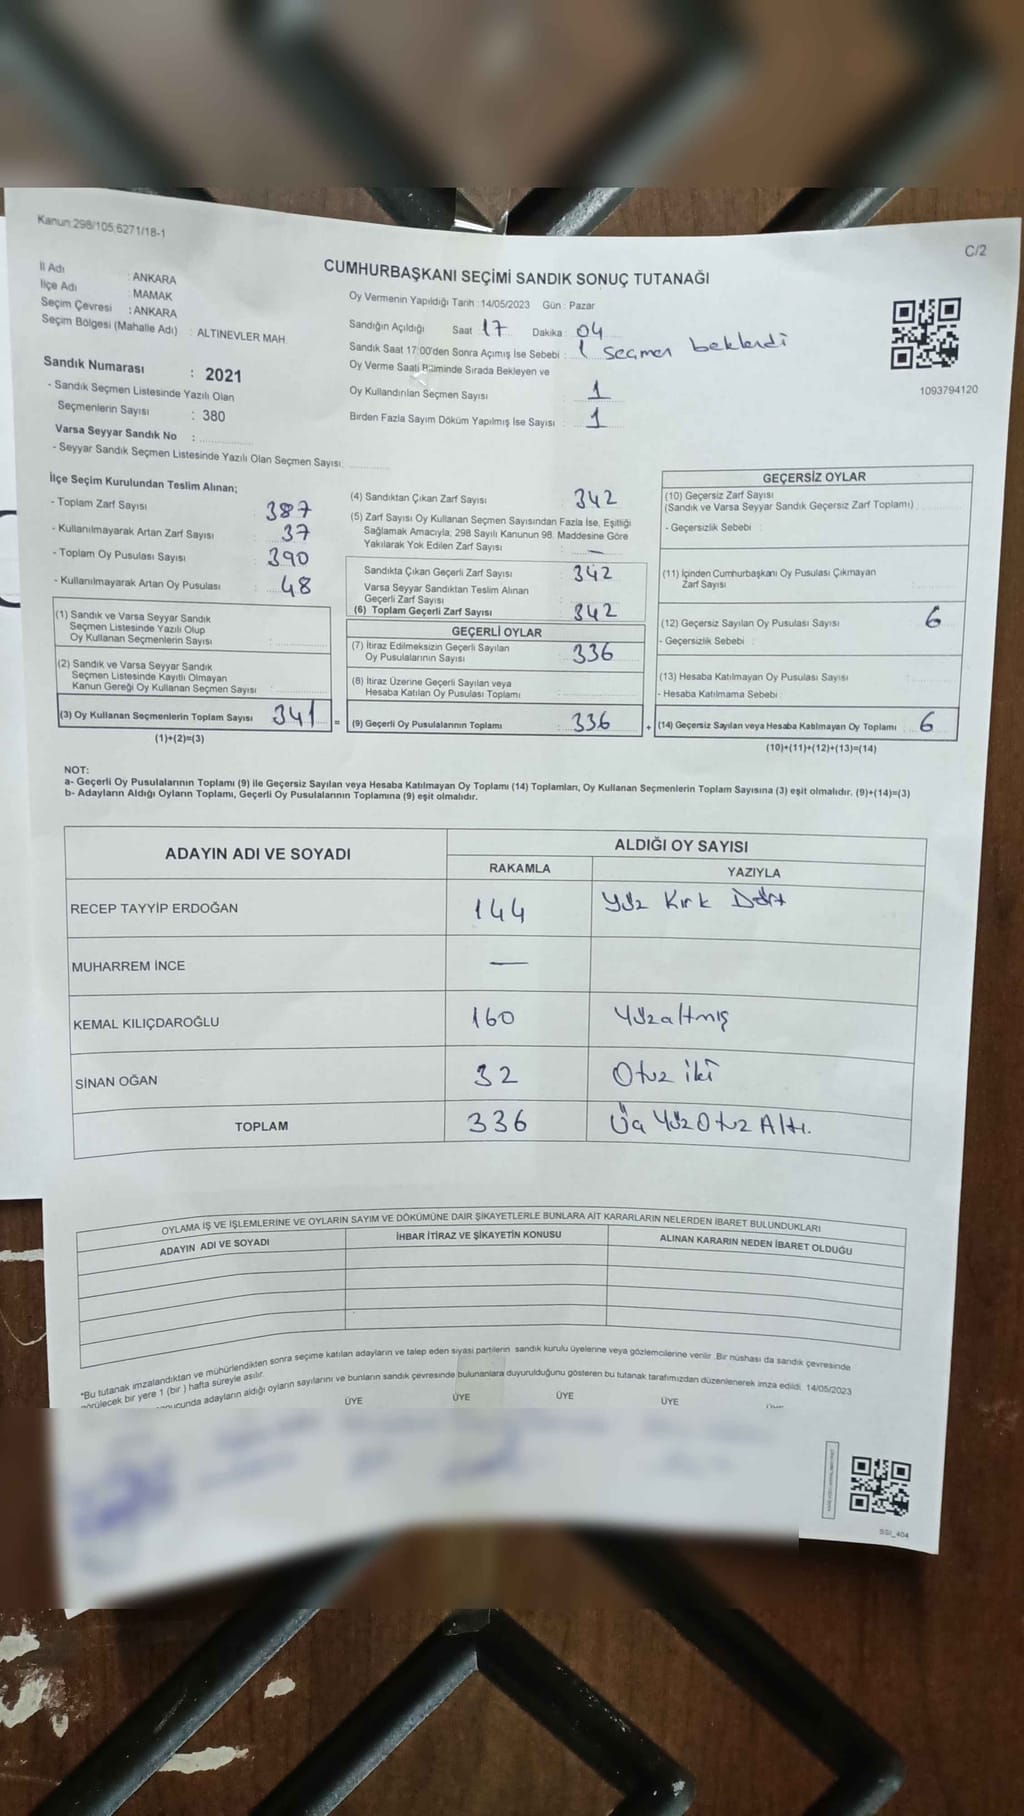 Kanun:298/105,6271/18-1
C/2
İl Adı : ANKARA
İlçe Adı : MAMAK
Seçim Çevresi : ANKARA
Seçim Bölgesi (Mahalle Adı) : ALTINEVLER MAH.
CUMHURBAŞKANI SEÇİMİ SANDIK SONUÇ TUTANAĞI
Oy Vermenin Yapıldığı Tarih : 14/05/2023 Gün : Pazar
Sandığın Açıldığı Saat 17 Dakika : 04
Sandık Saat 17:00'den Sonra Açımış İse Sebebi : 1 seçmen beklendi
Oy Verme Saati Bitiminde Sırada Bekleyen ve
Oy Kullandırılan Seçmen Sayısı : 1
Birden Fazla Sayım Döküm Yapılmış İse Sayısı : 1
1093794120
Sandık Numarası : 2021
- Sandık Seçmen Listesinde Yazılı Olan
Seçmenlerin Sayısı : 380
Varsa Seyyar Sandık No :
- Seyyar Sandık Seçmen Listesinde Yazılı Olan Seçmen Sayısı:
İlçe Seçim Kurulundan Teslim Alınan;
- Toplam Zarf Sayısı 387
- Kullanılmayarak Artan Zarf Sayısı 37
- Toplam Oy Pusulası Sayısı 390
- Kullanılmayarak Artan Oy Pusulası 48
(1) Sandık ve Varsa Seyyar Sandık
Seçmen Listesinde Yazılı Olup
Oy Kullanan Seçmenlerin Sayısı :
(2) Sandık ve Varsa Seyyar Sandık
Seçmen Listesinde Kayıtlı Olmayan
Kanun Gereği Oy Kullanan Seçmen Sayısı :
(3) Oy Kullanan Seçmenlerin Toplam Sayısı 341 =
(1)+(2)=(3)
(4) Sandıktan Çıkan Zarf Sayısı 342
(5) Zarf Sayısı Oy Kullanan Seçmen Sayısından Fazla İse, Eşitliği
Sağlamak Amacıyla; 298 Sayılı Kanunun 98. Maddesine Göre
Yakılarak Yok Edilen Zarf Sayısı : —
Sandıkta Çıkan Geçerli Zarf Sayısı : 342
Varsa Seyyar Sandıktan Teslim Alınan
Geçerli Zarf Sayısı :
(6) Toplam Geçerli Zarf Sayısı : 342
GEÇERLİ OYLAR
(7) İtiraz Edilmeksizin Geçerli Sayılan
Oy Pusulalarının Sayısı : 336
(8) İtiraz Üzerine Geçerli Sayılan veya
Hesaba Katılan Oy Pusulası Toplamı :
(9) Geçerli Oy Pusulalarının Toplamı : 336 +
GEÇERSİZ OYLAR
(10) Geçersiz Zarf Sayısı
(Sandık ve Varsa Seyyar Sandık Geçersiz Zarf Toplamı) :
- Geçersizlik Sebebi :
(11) İçinden Cumhurbaşkanı Oy Pusulası Çıkmayan
Zarf Sayısı :
(12) Geçersiz Sayılan Oy Pusulası Sayısı : 6
- Geçersizlik Sebebi :
(13) Hesaba Katılmayan Oy Pusulası Sayısı :
- Hesaba Katılmama Sebebi :
(14) Geçersiz Sayılan veya Hesaba Katılmayan Oy Toplamı : 6
(10)+(11)+(12)+(13)=(14)
NOT:
a- Geçerli Oy Pusulalarının Toplamı (9) ile Geçersiz Sayılan veya Hesaba Katılmayan Oy Toplamı (14) Toplamları, Oy Kullanan Seçmenlerin Toplam Sayısına (3) eşit olmalıdır. (9)+(14)=(3)
b- Adayların Aldığı Oyların Toplamı, Geçerli Oy Pusulalarının Toplamına (9) eşit olmalıdır.
ADAYIN ADI VE SOYADI
ALDIĞI OY SAYISI
RAKAMLA YAZIYLA
RECEP TAYYİP ERDOĞAN 144 Yüz Kırk Dört
MUHARREM İNCE —
KEMAL KILIÇDAROĞLU 160 Yüzaltmış
SİNAN OĞAN 32 Otuz iki
TOPLAM 336 Üç Yüz Otuz Altı.
OYLAMA İŞ VE İŞLEMLERİNE VE OYLARIN SAYIM VE DÖKÜMÜNE DAİR ŞİKAYETLERLE BUNLARA AİT KARARLARIN NELERDEN İBARET BULUNDUKLARI
ADAYIN ADI VE SOYADI İHBAR İTİRAZ VE ŞİKAYETİN KONUSU ALINAN KARARIN NEDEN İBARET OLDUĞU
*Bu tutanak imzalandıktan ve mühürlendikten sonra seçime katılan adayların ve talep eden siyasi partilerin sandık kurulu üyelerine veya gözlemcilerine verilir .Bir nüshası da sandık çevresinde
görülecek bir yere 1 (bir ) hafta süreyle asılır.
adayların aldığı oyların sayılarını ve bunların sandık çevresinde bulunanlara duyurulduğunu gösteren bu tutanak tarafımızdan düzenlenerek imza edildi. 14/05/2023
ÜYE ÜYE ÜYE ÜYE
SSI_404